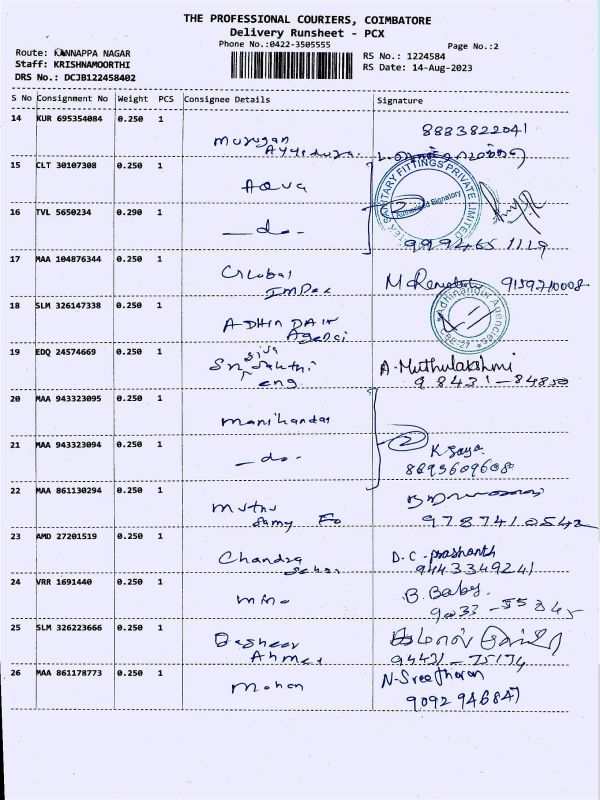 THE PROFESSIONAL COURIERS, COIMBATORE
Delivery Runsheet - PCX
Phone No.:0422-3505555
Page No.:2
Route: KANNAPPA NAGAR
Staff: KRISHNAMOORTHI
DRS No.: DCJB122458402
RS No.: 1224584
RS Date: 14-Aug-2023
S No Consignment No Weight PCS Consignee Details Signature
14 KUR 695354084 0.250 1 Murugan 8883822041
15 CLT 30107308 0.250 1 Aqua
SANITARY FITTINGS PRIVATE LIMITED
Authorised Signatory
16 TVL 5650234 0.290 1 -do-
17 MAA 104876344 0.250 1 Global M 9159710008
Impex
18 SLM 326147338 0.250 1 ADHINDAIN
Adhinandin Agencies
CBE-27
19 EDQ 24574669 0.250 1 Sri Siva Sakthi A. Muthulakshmi
eng 98431-84850
20 MAA 943323095 0.250 1 Manikandan
21 MAA 943323094 0.250 1 -do- K
8895609608
22 MAA 861130294 0.250 1 Muthu
Samy 9787410542
23 AMD 27201519 0.250 1 Chandra D.C. prashanth
9443349241
24 VRR 1691440 0.250 1 B. Baby.
25 SLM 326223666 0.250 1 Basheer
Ahmed 94431-75174
26 MAA 861178773 0.250 1 Mohan N-Sreetharan
9092946847